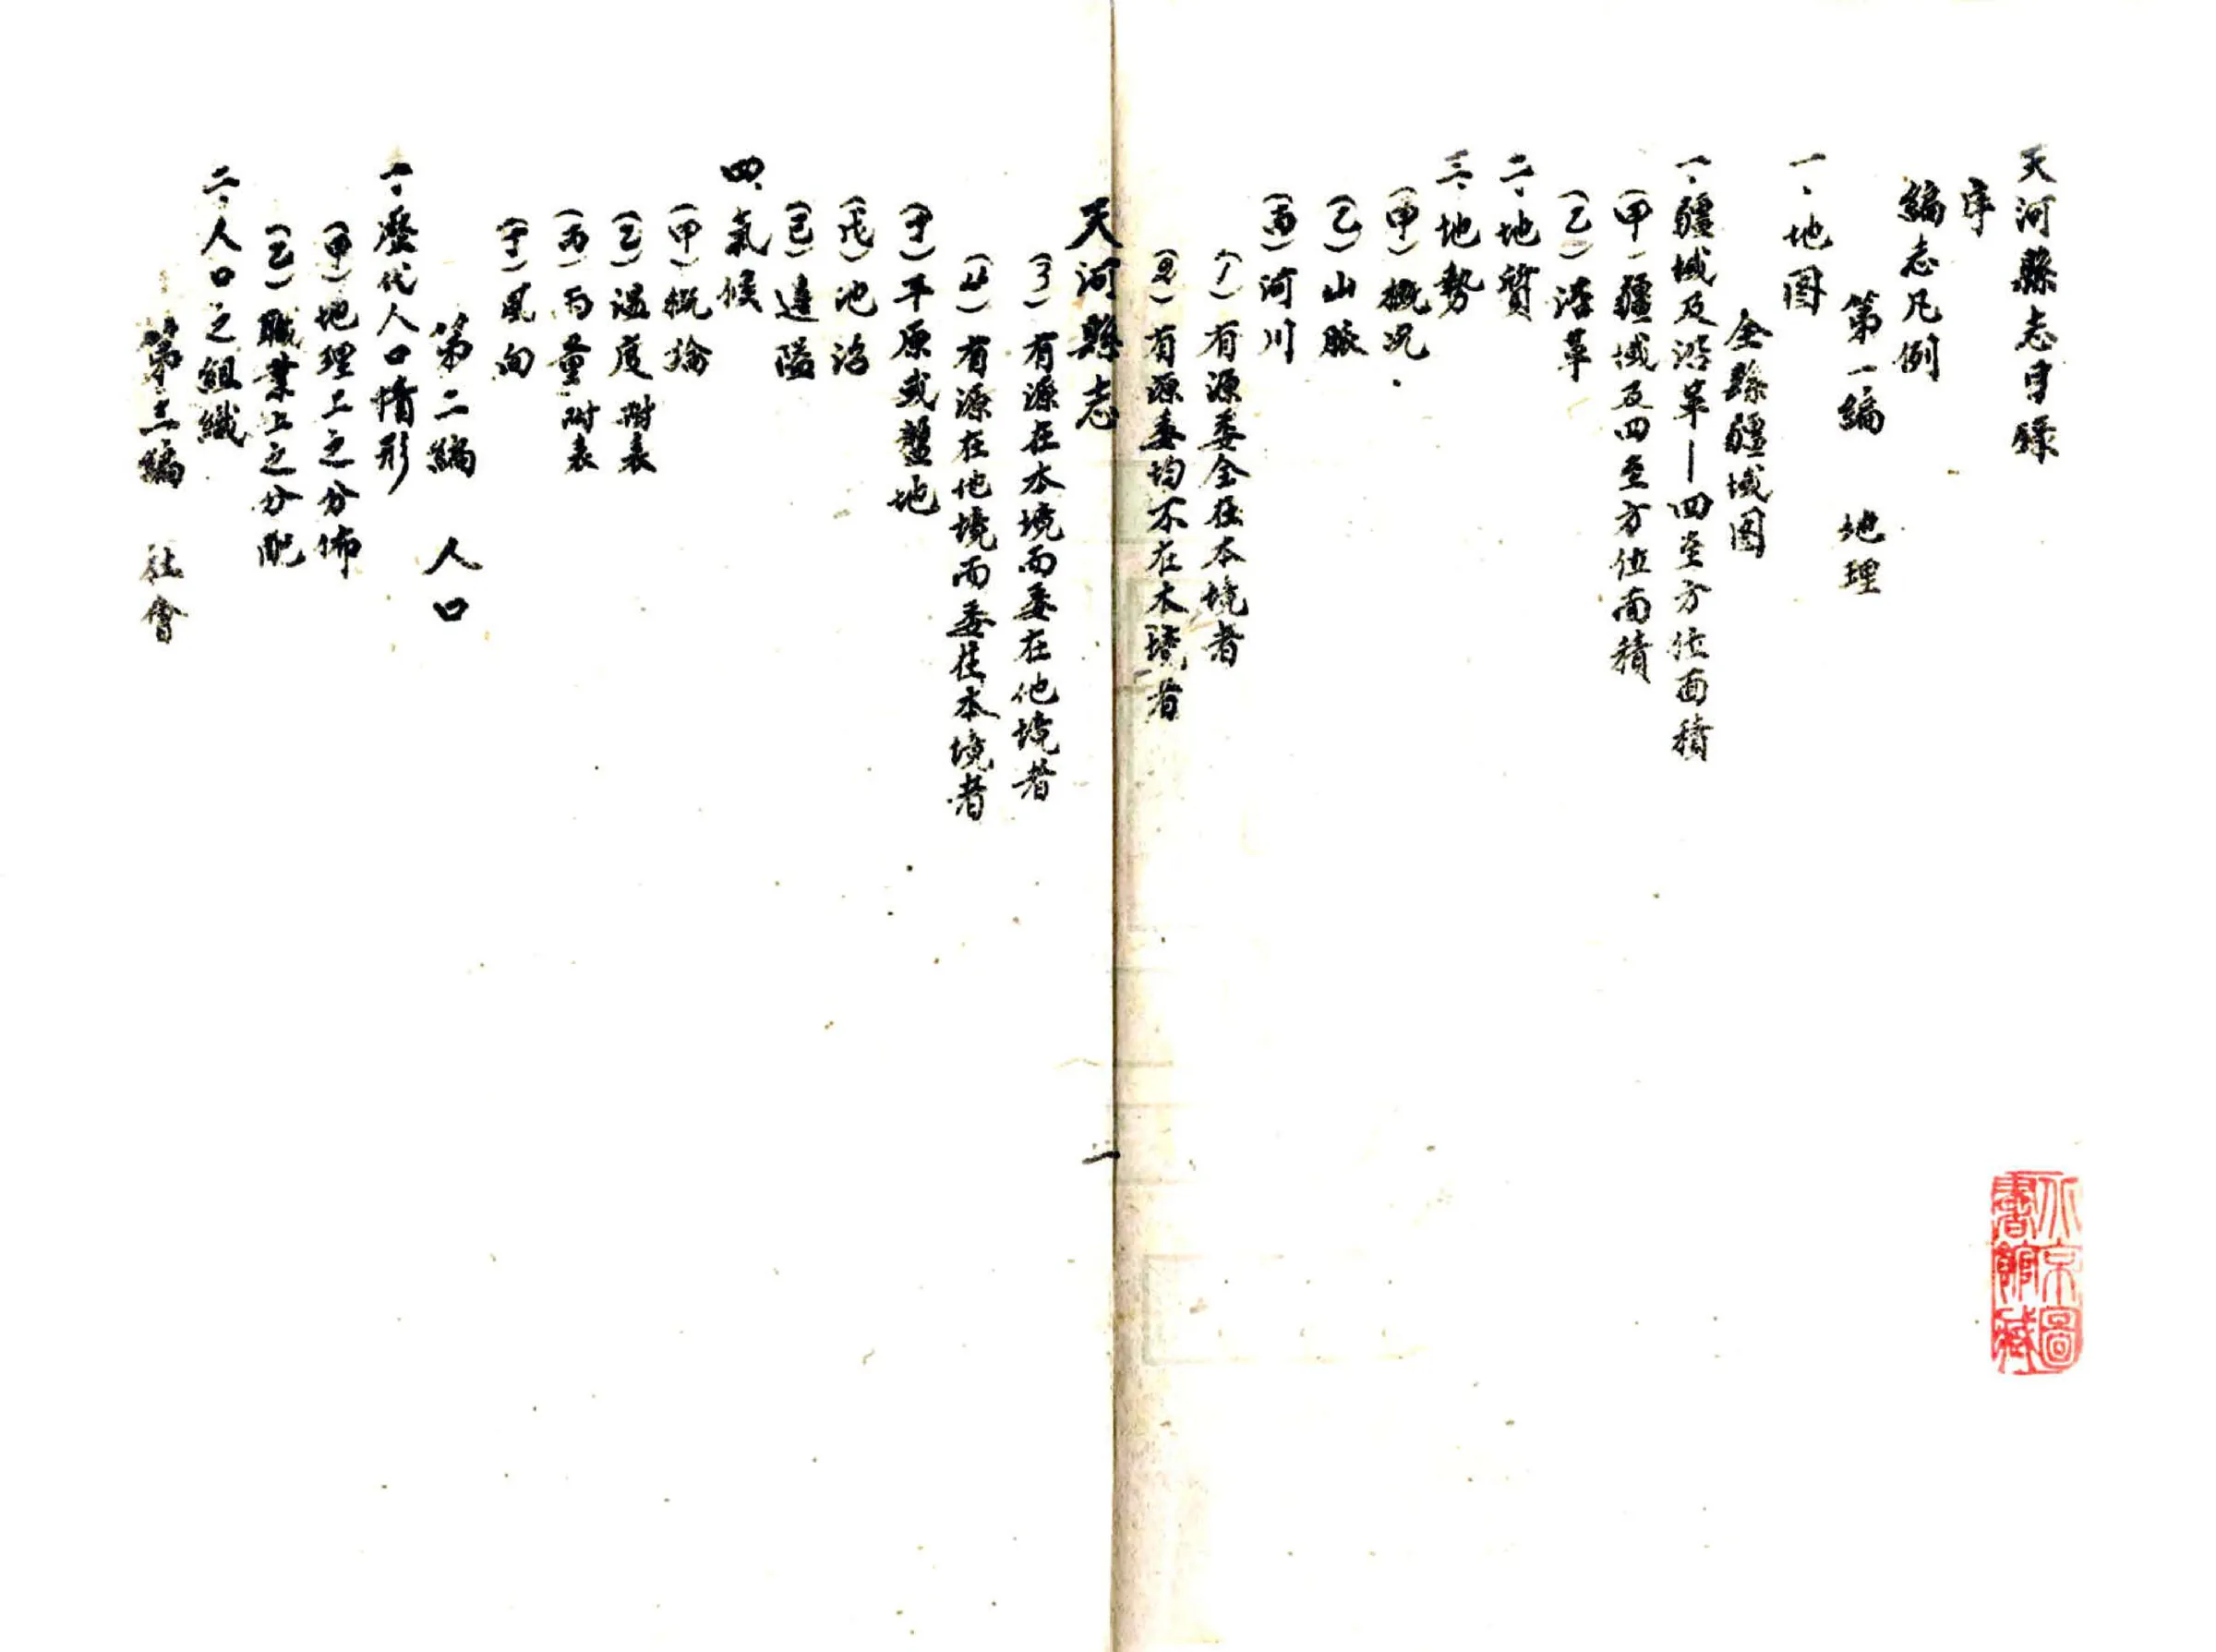 天河縣志目錄
序
編志凡例
第一編 地理
一、地图
全縣疆域图
一、疆域及沿革—四至方位面積
(甲)疆域及四至方位面積
(乙)沿革
二、地質
三、地勢
(甲)概况
(乙)山脈
(丙)河川
(1)有源委全在本境者
(2)有源委均不在本境者
天河縣志
一
(3)有源在本境而委在他境者
(4)有源在他境而委在本境者
(丁)平原或盤地
(戊)池沼
(己)邊隘
四、氣候
(甲)概論
(乙)溫度附表
(丙)雨量附表
(丁)風向
第二編 人口
一、歷代人口情形
(甲)地理上之分佈
(乙)職業上之分配
二、人口之組織
第三編 社會
北京圖書館藏